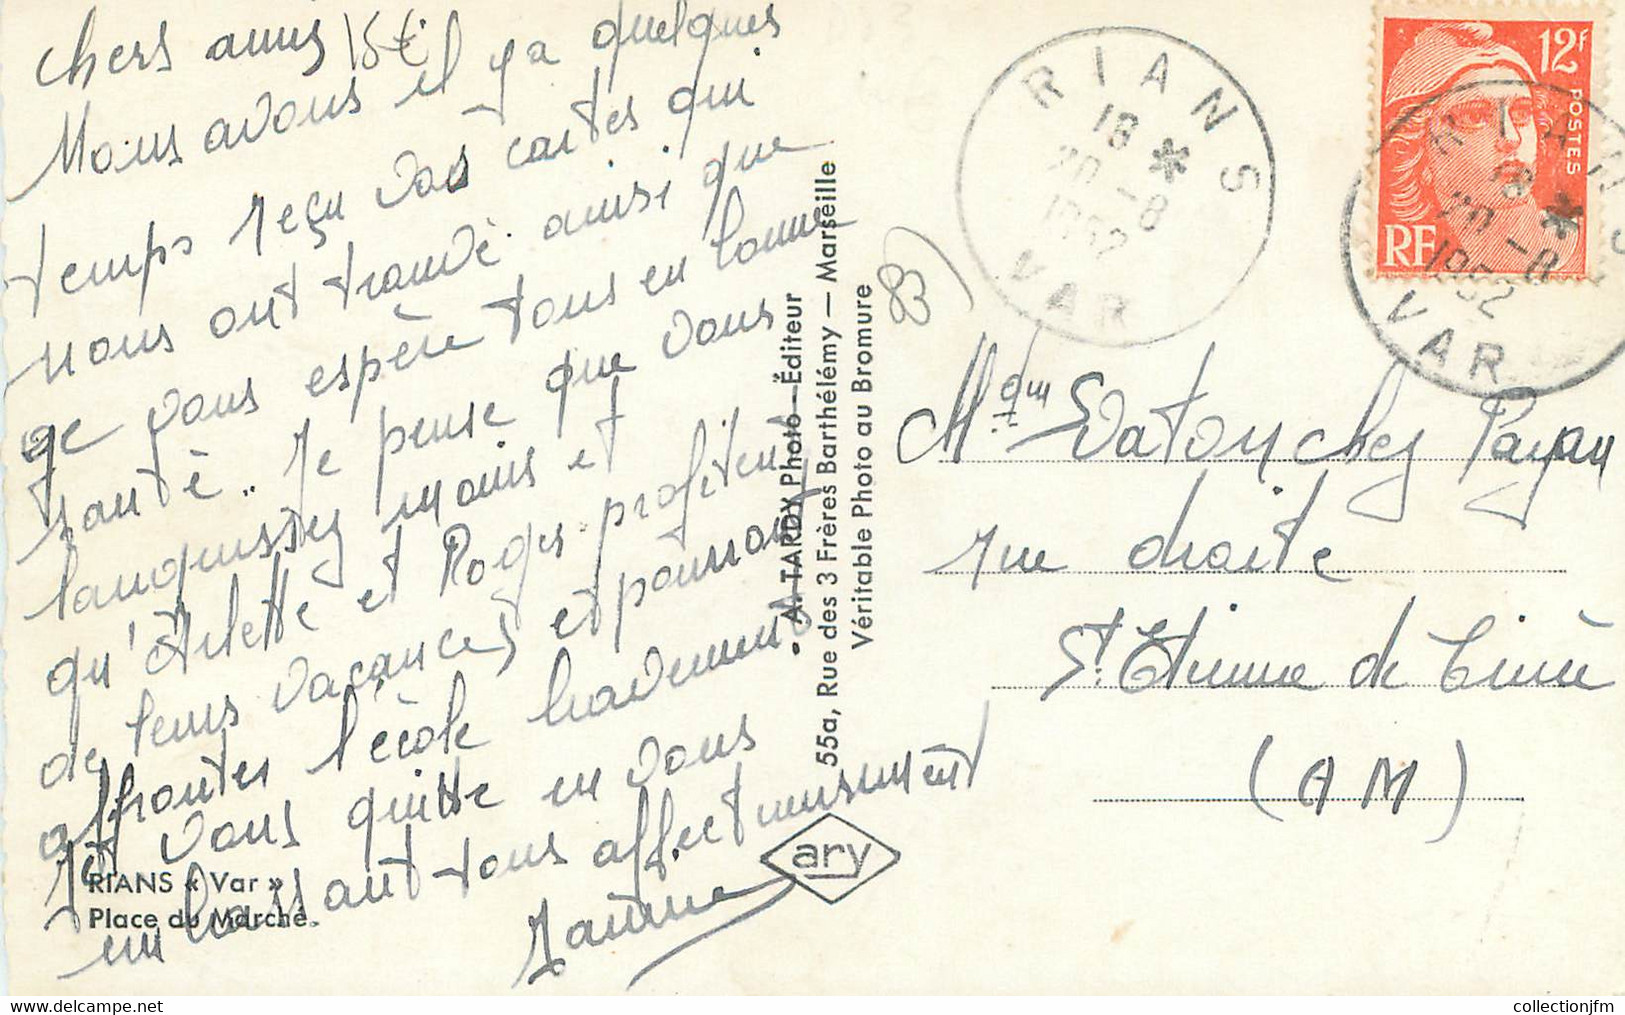 chers amis 15€
Nous avons il y a quelques
temps reçu vos cartes qui
nous ont trouvé ainsi que
je vous espère tous en bonne
santé.. Je pense que vous
languissez moins et
qu'Arlette et Roger profitent
de leurs vacances et pourront
affronter l'école bravement
Je vous quitte en vous
embrassant tous affectueusement
Janine
RIANS « Var »
Place du Marché.
A. TARDY Photo-Éditeur
55a, Rue des 3 Frères Barthélémy — Marseille
Véritable Photo au Bromure
ary
RIANS
18 *
20 -8
1952
VAR
12F
POSTES
RF
RIANS
18 *
20 -8
1952
VAR
chez Payan
rue droite
St. Etienne de Tinée
(AM)
collectionjfm